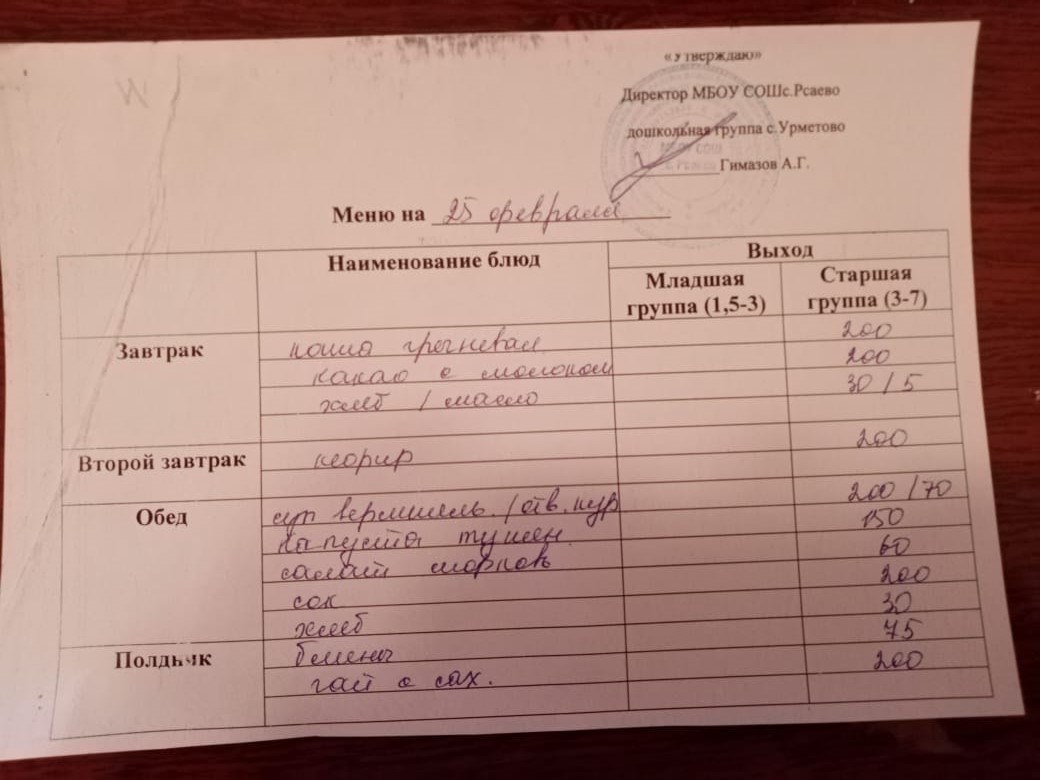 «Утверждаю»
Директор МБОУ СОШс.Рсаево
дошкольная группа с.Урметово
МБОУ СОШ
Гимазов А.Г.
Меню на 25 февраля
Наименование блюд Выход
Младшая группа (1,5-3) Старшая группа (3-7)
Завтрак каша гречневая 200
какао с молоком 200
хлеб / масло 30 / 5
Второй завтрак кефир 200
Обед суп вермишель. / отв. кур 200 / 70
капуста тушен. 150
салат морковь 60
сок 200
хлеб 30
Полдник блины 75
чай с сах. 200